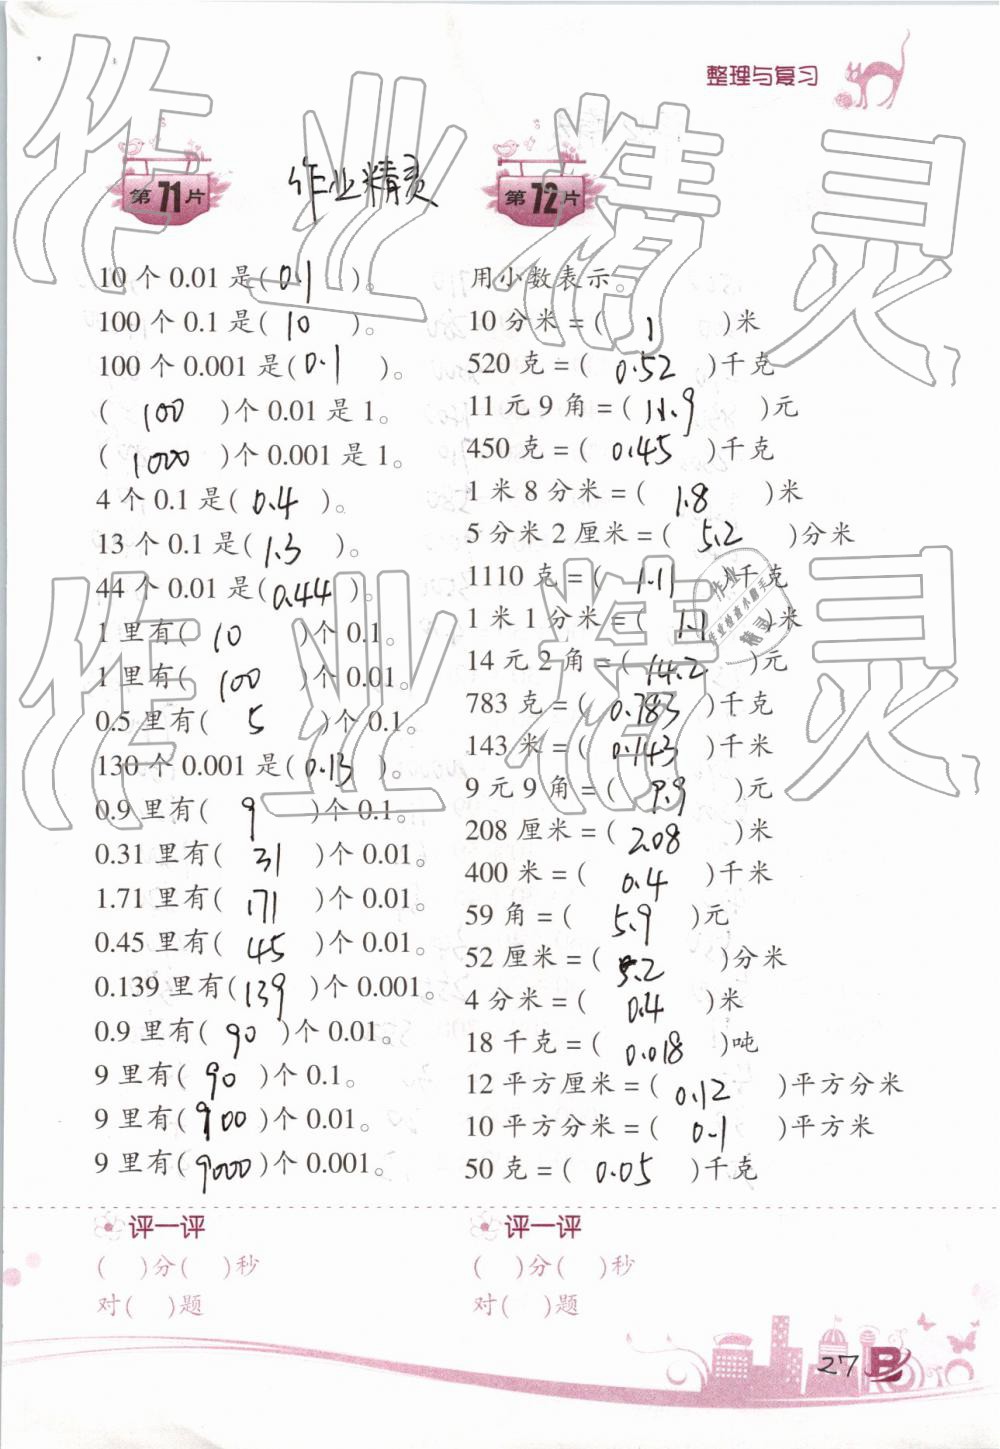 整理与复习
第71片
作业精灵
10个0.01是(0.1)。
100个0.1是(10)。
100个0.001是(0.1)。
(100)个0.01是1。
(1000)个0.001是1。
4个0.1是(0.4)。
13个0.1是(1.3)。
44个0.01是(0.44)。
1里有(10)个0.1。
1里有(100)个0.01。
0.5里有(5)个0.1。
130个0.001是(0.13)。
0.9里有(9)个0.1。
0.31里有(31)个0.01。
1.71里有(171)个0.01。
0.45里有(45)个0.01。
0.139里有(139)个0.001。
0.9里有(90)个0.01。
9里有(90)个0.1。
9里有(900)个0.01。
9里有(9000)个0.001。
评一评
( )分( )秒
对( )题
第72片
用小数表示。
10分米=(1)米
520克=(0.52)千克
11元9角=(11.9)元
450克=(0.45)千克
1米8分米=(1.8)米
5分米2厘米=(5.2)分米
1110克=(1.11)千克
1米1分米=(1.1)米
14元2角=(14.2)元
783克=(0.783)千克
143米=(0.143)千米
9元9角=(9.9)元
208厘米=(2.08)米
400米=(0.4)千米
59角=(5.9)元
52厘米=(5.2)分米
4分米=(0.4)米
18千克=(0.018)吨
12平方厘米=(0.12)平方分米
10平方分米=(0.1)平方米
50克=(0.05)千克
评一评
( )分( )秒
对( )题
27 B
作业精灵
作业精灵
作业
作业检查小助手
精灵